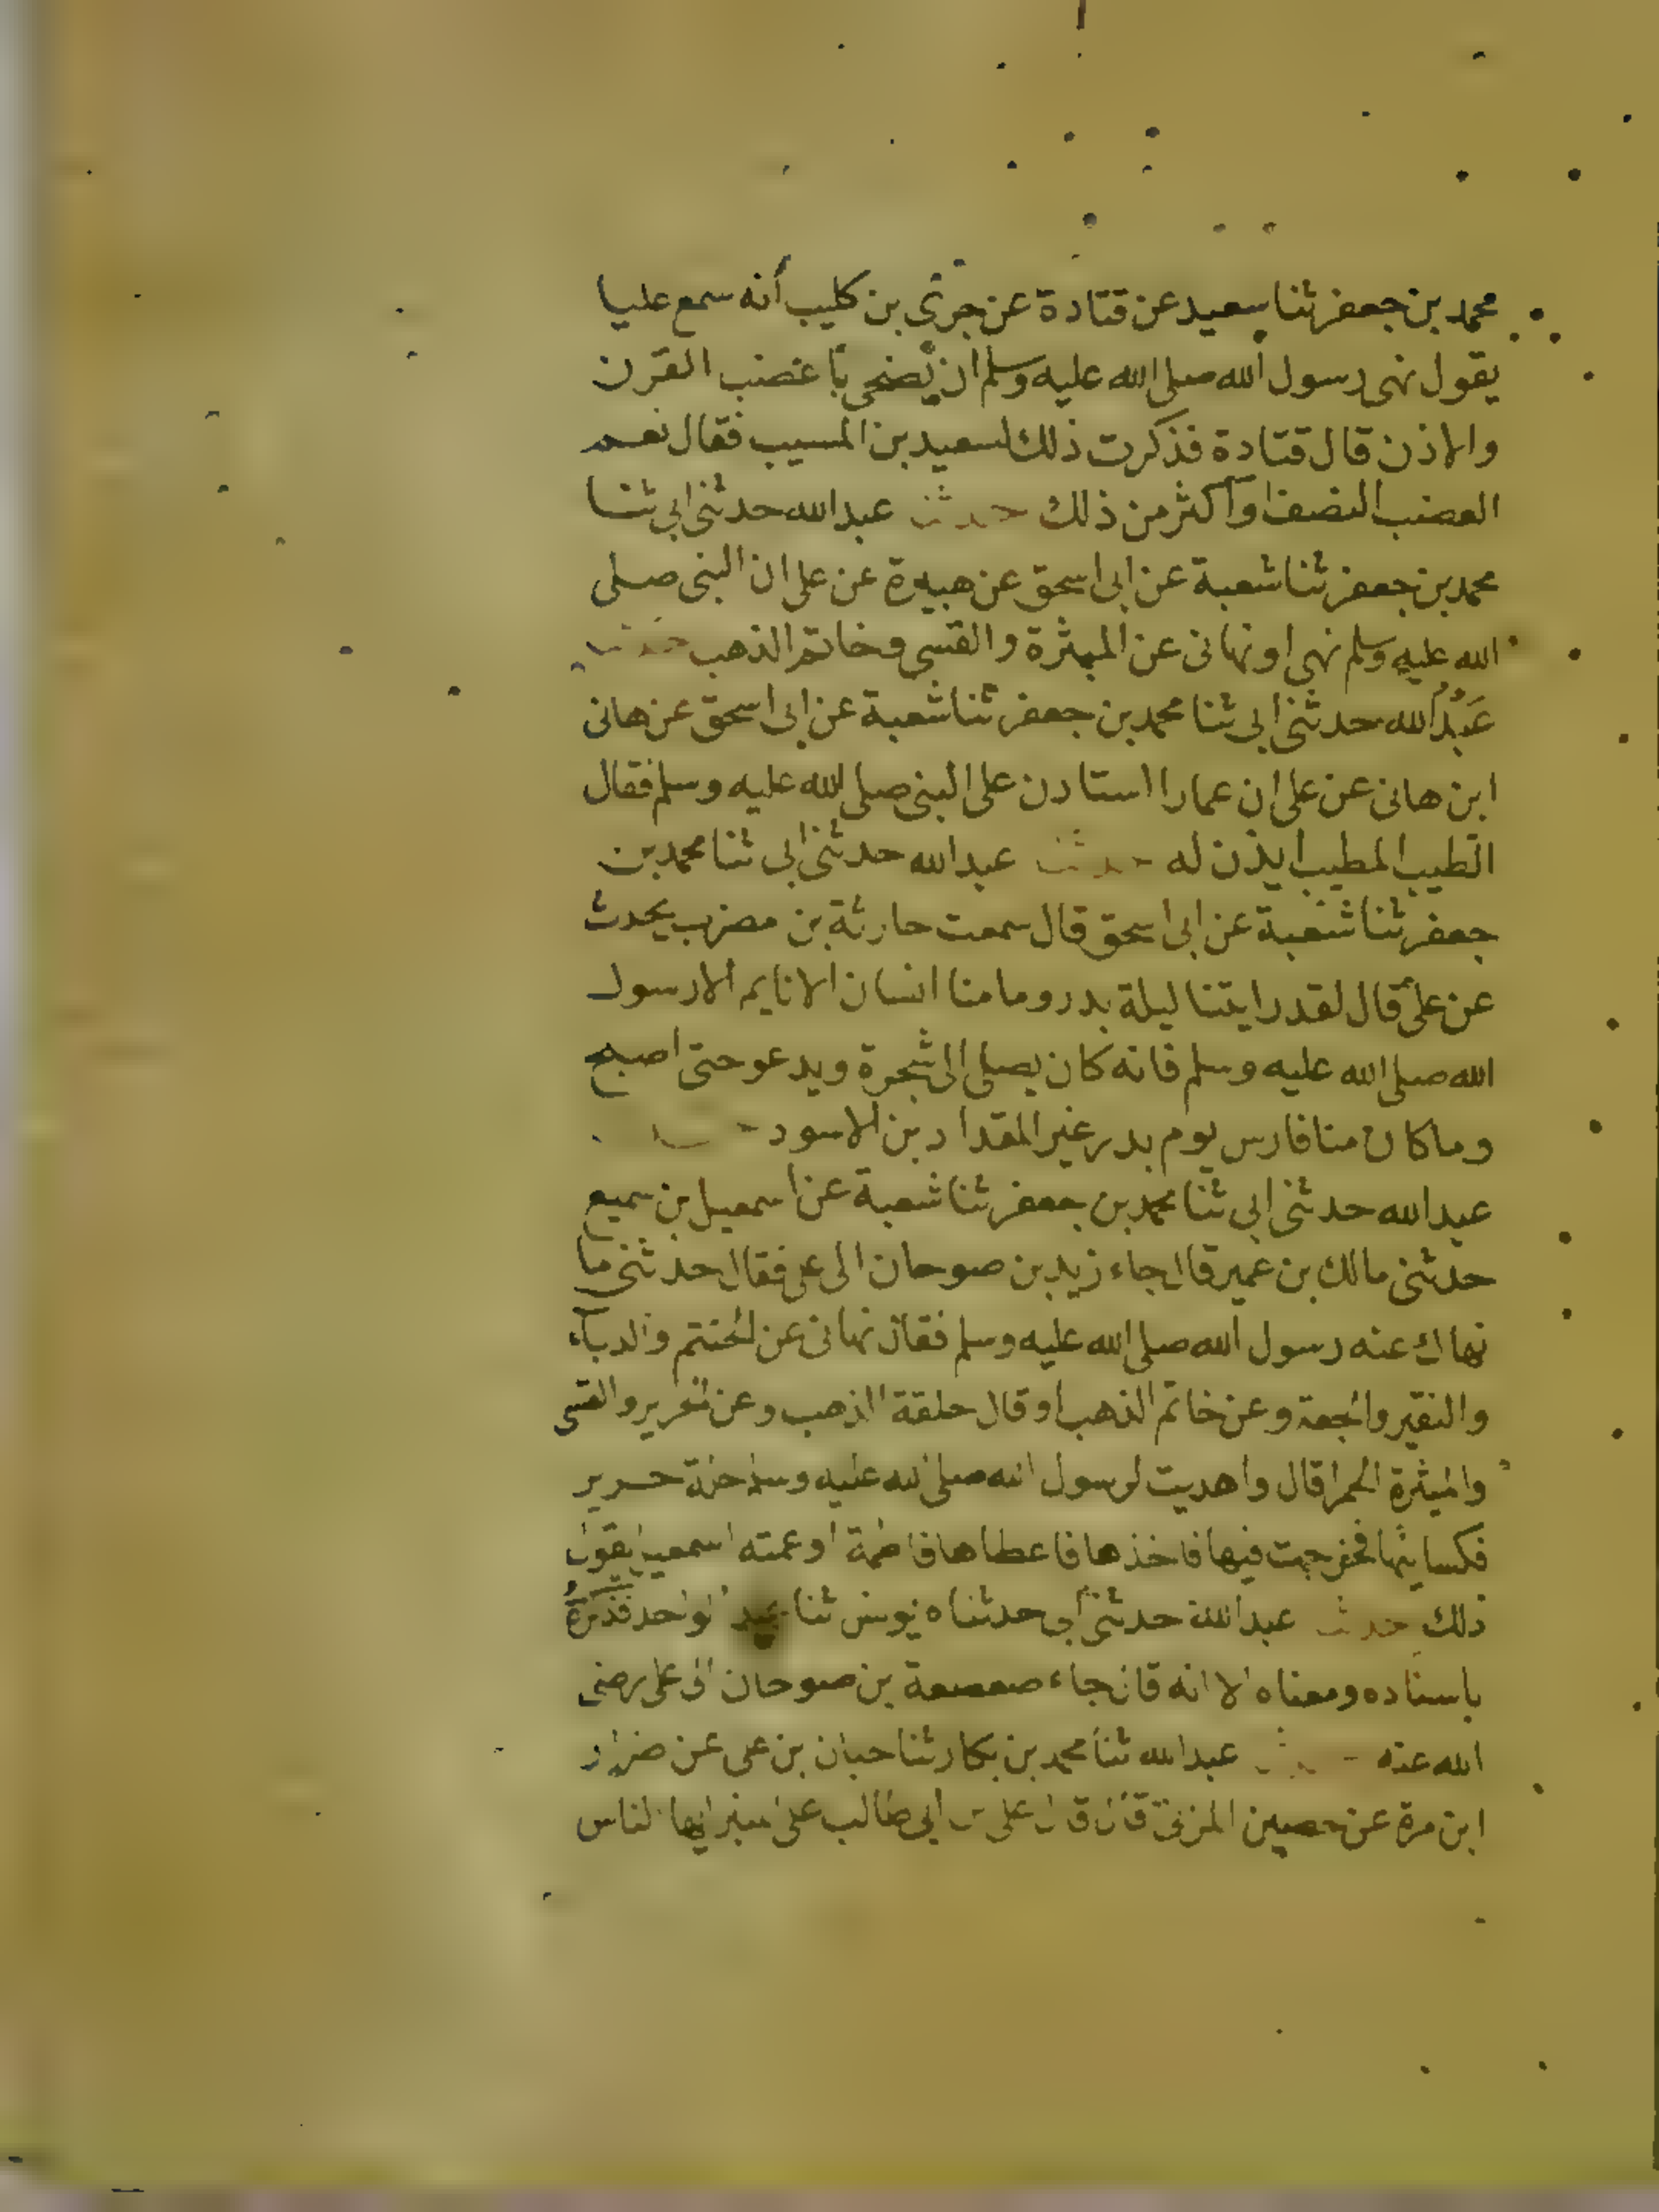 محمد بن جعفر ثنا سعيد عن قتادة عن جرى بن كليب أنه سمع عليا
يقول نهى رسول الله صلى الله عليه وسلم ان يضحى باعضب القرن
والاذن قال قتادة فذكرت ذلك لسعيد بن المسيب فقال نعم
العضب النصف او اكثر من ذلك حدثنا عبد الله حدثنى ابي ثنا
محمد بن جعفر ثنا شعبة عن ابى اسحق عن هبيرة عن على ان النبى صلى
الله عليه وسلم نهى او نهانى عن الميثرة والقسى وخاتم الذهب حدثنا
عَبْدُ الله حدثنى ابى ثنا محمد بن جعفر ثنا شعبة عن ابى اسحق عن هانى
ابن هانى عن على ان عمارا استاذن على النبى صلى الله عليه وسلم فقال
الطيب المطيب ايذن له حدثنا عبد الله حدثنى ابى ثنا محمد بن
جعفر ثنا شعبة عن ابى اسحق قال سمعت حارثة بن مضرب يحدث
عن على قال لقد رايتنا ليلة بدر وما منا انسان الا نايم الا رسول
الله صلى الله عليه وسلم فانه كان يصلى الى شجرة ويدعو حتى اصبح
وما كان منا فارس يوم بدر غير المقداد بن الاسود
عبد الله حدثنى ابى ثنا محمد بن جعفر ثنا شعبة عن اسمعيل بن سميع
حدثنى مالك بن عمير قال جاء زيد بن صوحان الى على فقال حدثنى ما
نهاك عنه رسول الله صلى الله عليه وسلم فقال نهانى عن الحنتم والدباء
والنقير والجعة وعن خاتم الذهب او قال حلقة الذهب وعن الحرير والقسى
والميثرة الحمرا قال واهديت لرسول الله صلى الله عليه وسلم حلة حرير
فكسانيها فخرجت فيها فاخذها فاعطاها فاطمة او عمته اسمعيل يقول
ذلك حدثنا عبد الله حدثنى ابى حدثناه يونس ثنا عبد الواحد فذكره
باسناده ومعناه الا انه قال جاء صعصعة بن صوحان الى على رضى
الله عنه حدثنا عبد الله ثنا محمد بن بكار ثنا حبان بن على عن ضرار
ابن مرة عن حصين المزنى قال قال على بن ابى طالب على المنبر ايها الناس